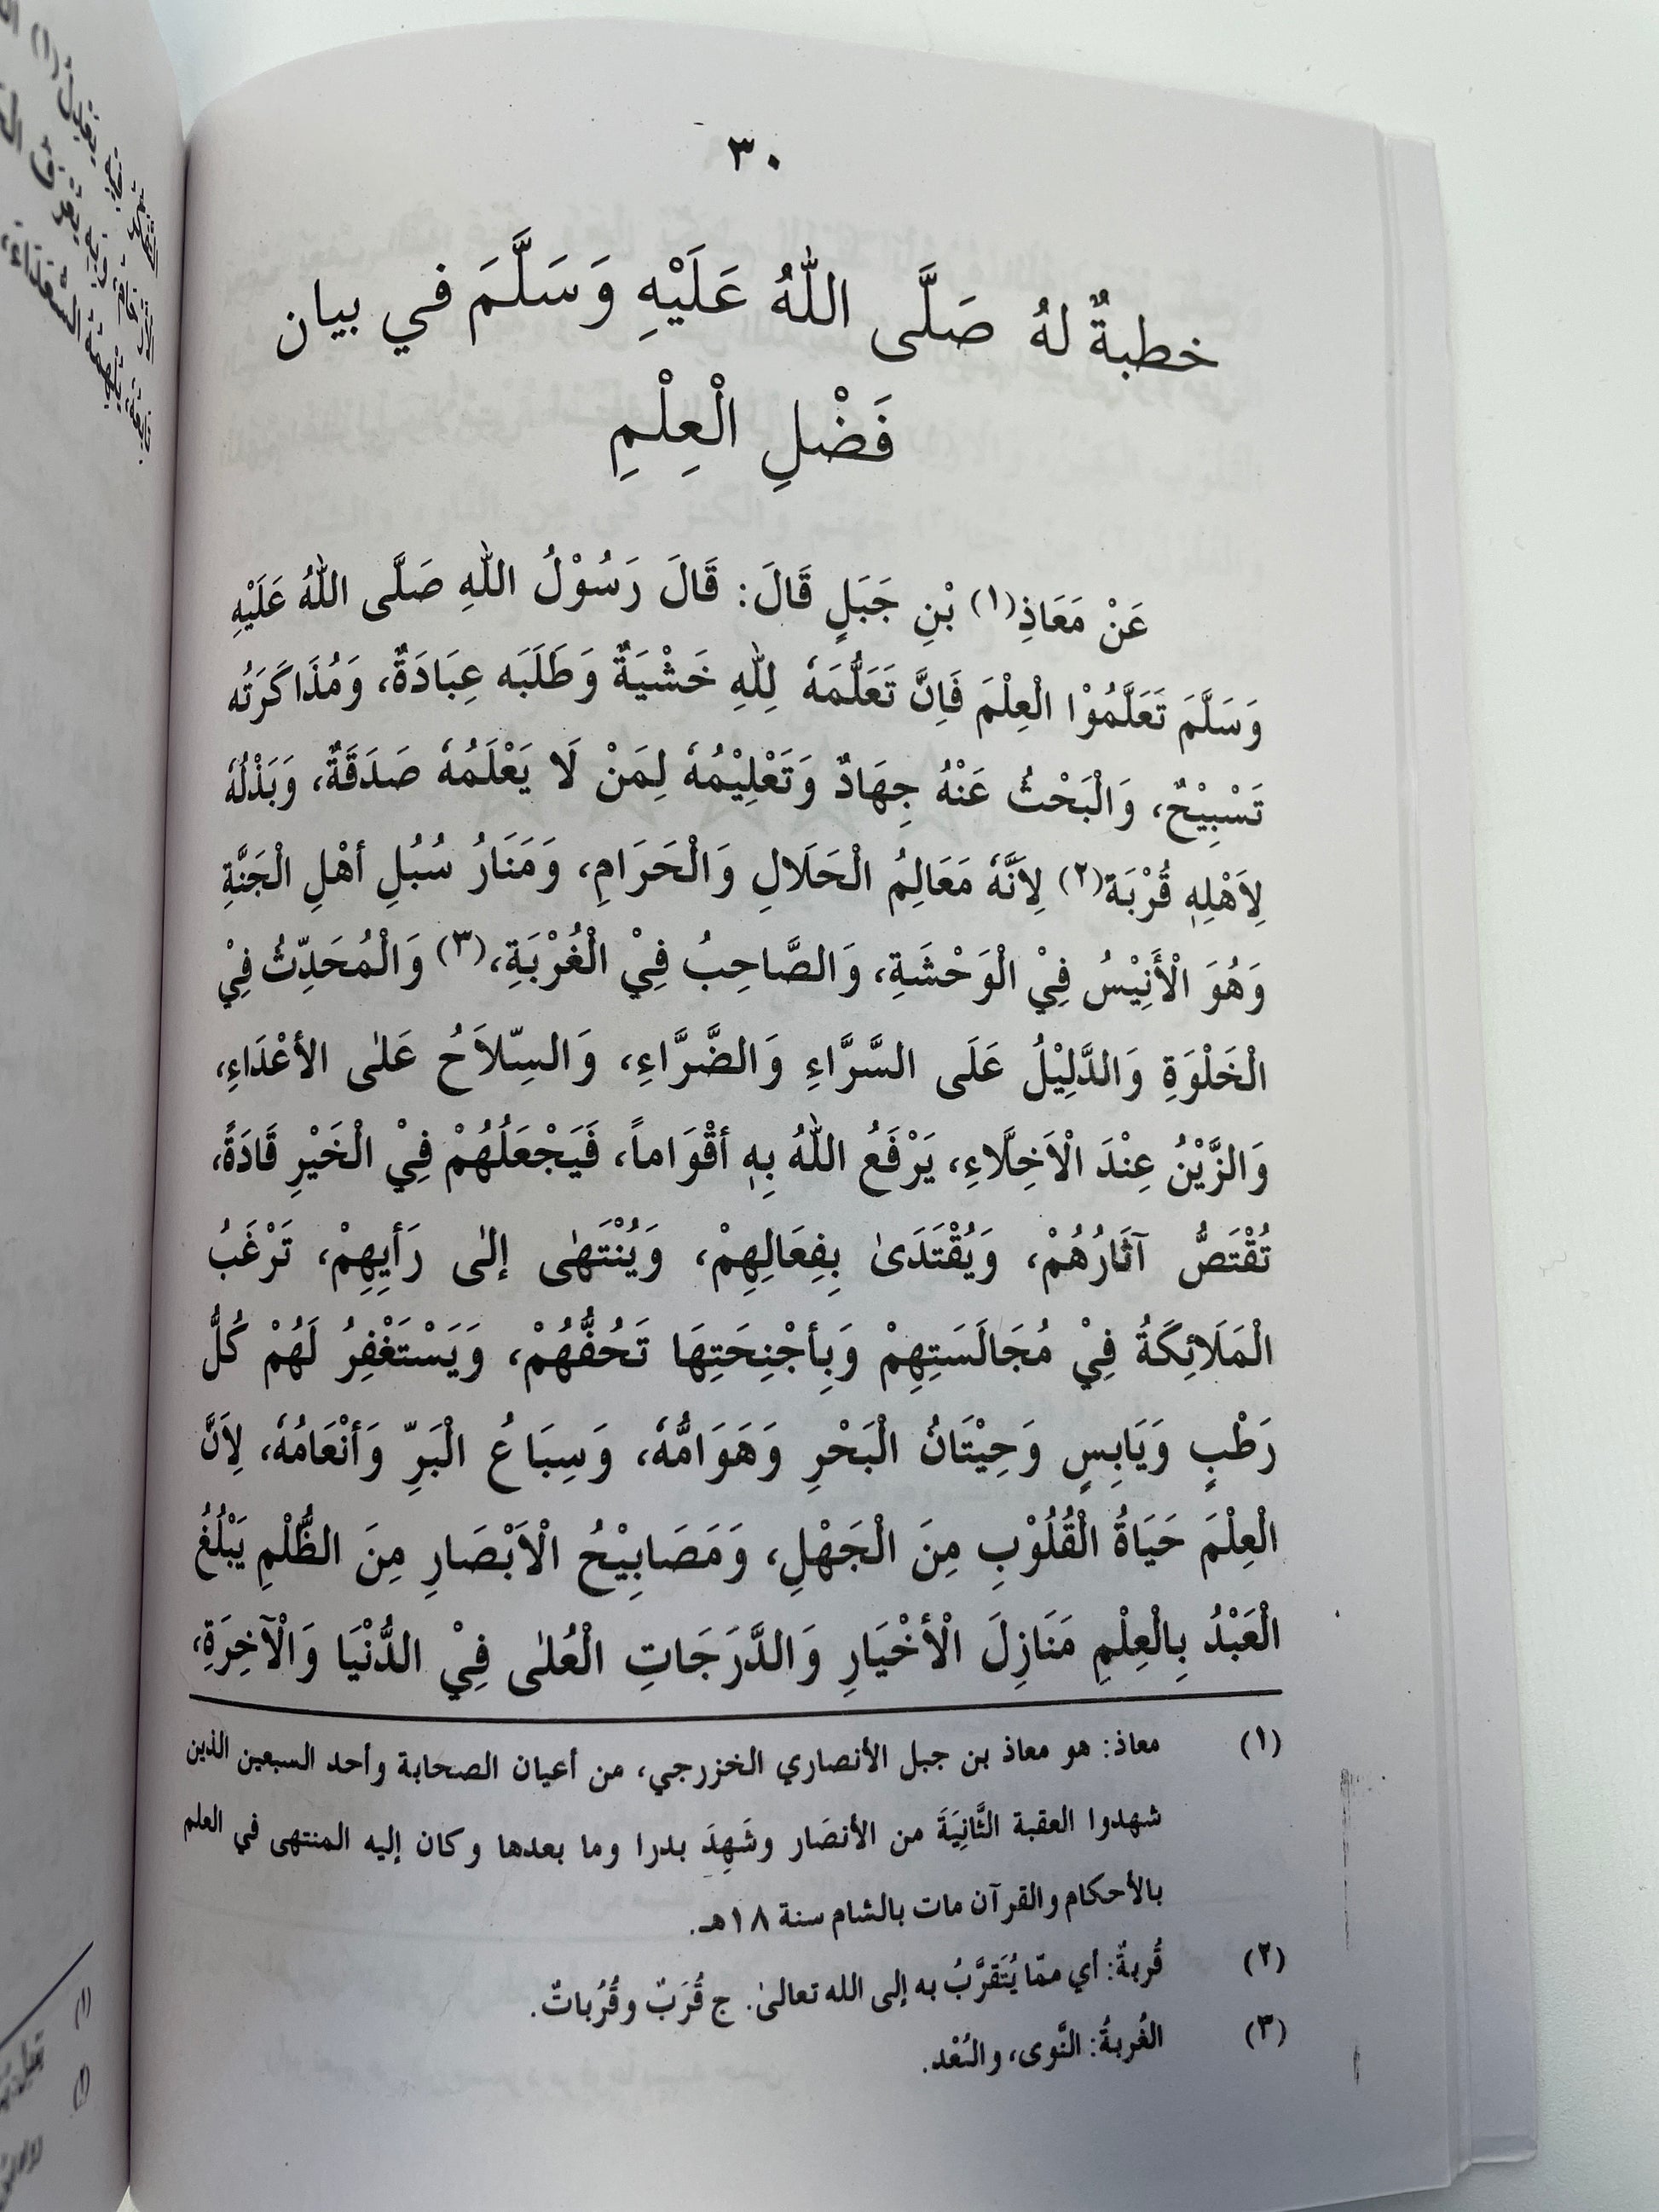 ٣٠
خطبةٌ لهُ صَلَّى اللّٰهُ عَلَيْهِ وَسَلَّمَ في بيان
فَضْلِ الْعِلْمِ
عَنْ مَعَاذِ(١) بْنِ جَبَلٍ قَالَ: قَالَ رَسُوْلُ اللّٰهِ صَلَّى اللّٰهُ عَلَيْهِ
وَسَلَّمَ تَعَلَّمُوْا الْعِلْمَ فَاِنَّ تَعَلُّمَهٗ لِلّٰهِ خَشْيَةٌ وَطَلَبَه عِبَادَةٌ، وَمُذَاكَرَتُه
تَسْبِيْحٌ، وَالْبَحْثُ عَنْهُ جِهَادٌ وَتَعْلِيْمُهٗ لِمَنْ لَا يَعْلَمُهٗ صَدَقَةٌ، وَبَذْلُهٗ
لِاَهْلِهٖ قُرْبَة(٢) لِاَنَّهٗ مَعَالِمُ الْحَلَالِ وَالْحَرَامِ، وَمَنَارُ سُبُلِ أهْلِ الْجَنَّةِ
وَهُوَ الْأَنِيْسُ فِيْ الْوَحْشَةِ، وَالصَّاحِبُ فِيْ الْغُرْبَةِ،(٣) وَالْمُحَدِّثُ فِيْ
الْخَلْوَةِ وَالدَّلِيْلُ عَلَى السَّرَّاءِ وَالضَّرَّاءِ، وَالسِّلاَحُ عَلٰى الأعْدَاءِ،
وَالزَّيْنُ عِنْدَ الْاَخِلَّاءِ، يَرْفَعُ اللّٰهُ بِهٖ أقْوَاماً، فَيَجْعَلُهُمْ فِيْ الْخَيْرِ قَادَةً،
تُقْتَصُّ آثَارُهُمْ، وَيُقْتَدَىٰ بِفِعَالِهِمْ، وَيُنْتَهٰى إلٰى رَأيِهِمْ، تَرْغَبُ
الْمَلَائِكَةُ فِيْ مُجَالَسَتِهِمْ وَبِأجْنِحَتِهَا تَحُفُّهُمْ، وَيَسْتَغْفِرُ لَهُمْ كُلُّ
رَطْبٍ وَيَابِسٍ وَحِيْتَانُ الْبَحْرِ وَهَوَامُّهٗ، وَسِبَاعُ الْبَرِّ وَأنْعَامُهٗ، لِاَنَّ
الْعِلْمَ حَيَاةُ الْقُلُوْبِ مِنَ الْجَهْلِ، وَمَصَابِيْحُ الْاَبْصَارِ مِنَ الظُّلْمِ يَبْلُغُ
الْعَبْدُ بِالْعِلْمِ مَنَازِلَ الْأخْيَارِ وَالدَّرَجَاتِ الْعُلٰى فِيْ الدُّنْيَا وَالْآخِرَةِ،
(١) معاذ: هو معاذ بن جبل الأنصاري الخزرجي، من أعيان الصحابة وأحد السبعين الذين
شهدوا العقبة الثَّانِيَةَ من الأنصَار وشَهِدَ بدرا وما بعدها وكان إليه المنتهى في العلم
بالأحكام والقرآن مات بالشام سنة ١٨هـ.
(٢) قُربةٌ: أي ممّا يُتَقرَّبُ به إلى الله تعالىٰ. ج قُرَبٌ وقُرُباتٌ.
(٣) الغُربةُ: النَّوى، والبُعْد.